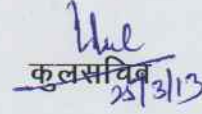 कुलसचिव
25/3/13